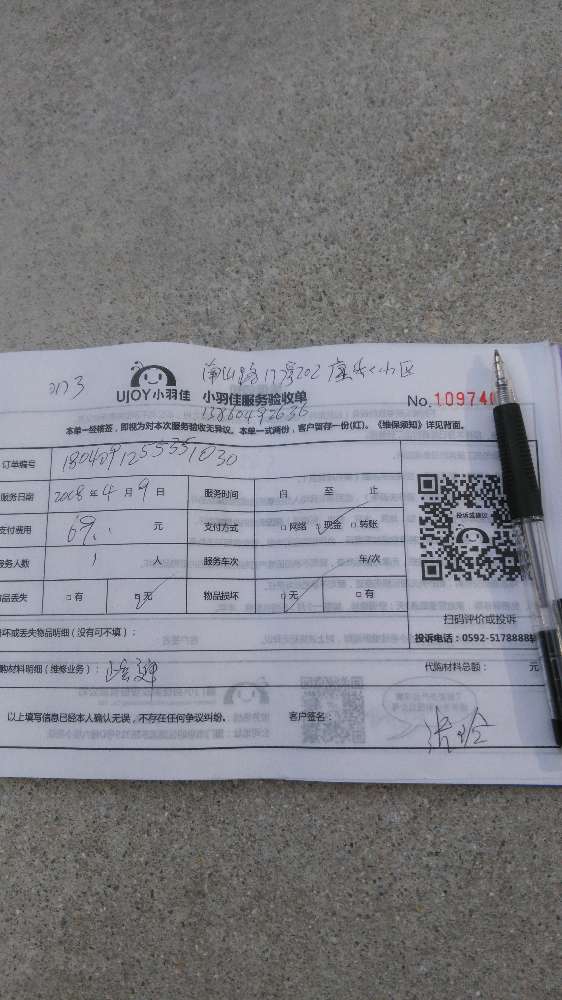 2173
UJOY小羽佳
南山路17号202康乐小区
小羽佳服务验收单
No.109740
13860492636
本单一经核签，即视为对本次服务验收无异议。本单一式两份，客户留存一份(红)。《维保须知》详见背面。
订单编号 18040912553551030
服务日期 2008年4月9日 服务时间 自 至 止
支付费用 69. 元 支付方式 □网络 □现金 □转账
服务人数 1 人 服务车次 车/次
物品丢失 □有 □无 物品损坏 □无 □有
投诉或建议
扫码评价或投诉
投诉电话：0592-5178888
损坏或丢失物品明细（没有可不填）：
代购材料明细（维修业务）： 代购材料总额： 元
以上填写信息已经本人确认无误，不存在任何争议纠纷。 客户签名：